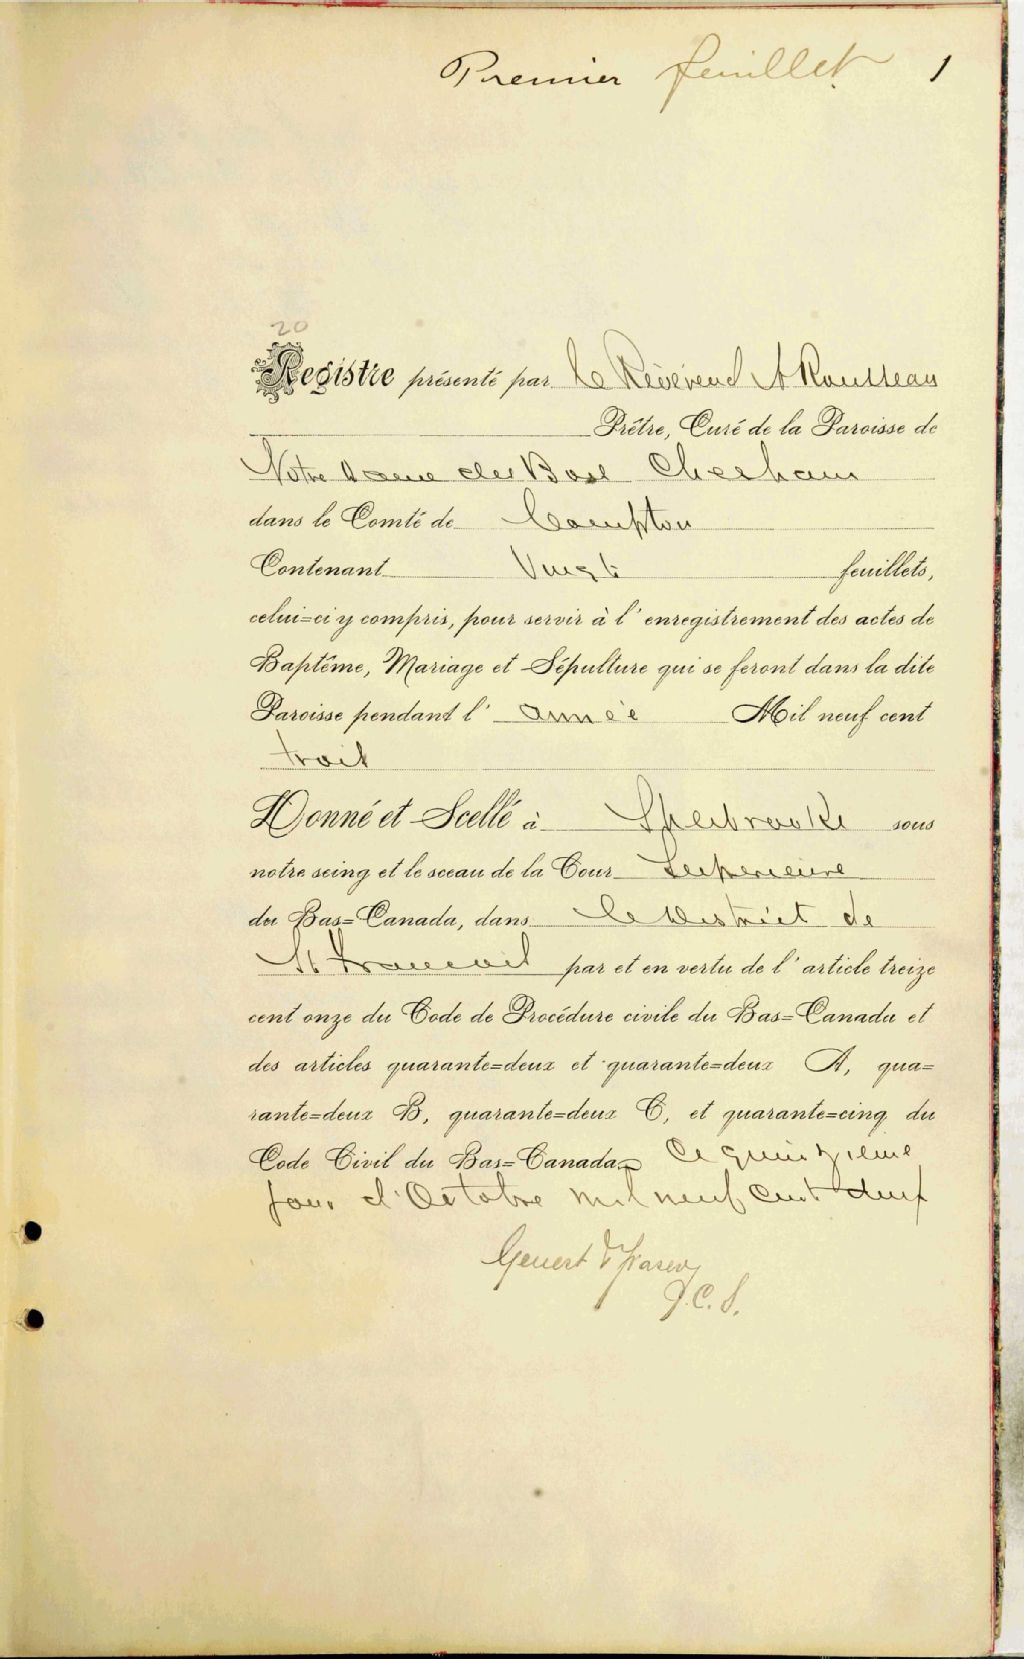 Premier feuillet 1
20
Registre présenté par le Révérend A Rousseau
Prêtre, Curé de la Paroisse de
Notre Dame des Bois Chesham
dans le Comté de Compton
Contenant Vingt feuillets,
celui=ci y compris, pour servir à l'enregistrement des actes de
Baptême, Mariage et Sépulture qui se feront dans la dite
Paroisse pendant l'année Mil neuf cent
trois
Donné et Scellé à Sherbrooke sous
notre seing et le sceau de la Cour Superieure
du Bas=Canada, dans le District de
St Francois par et en vertu de l'article treize
cent onze du Code de Procédure civile du Bas=Canada et
des articles quarante=deux et quarante=deux A, qua=
rante=deux B, quarante=deux C, et quarante=cinq du
Code Civil du Bas=Canada Ce quinzieme
jour d'Octobre mil neuf Cent deux